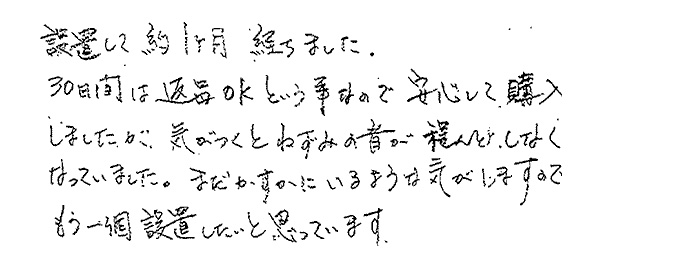 設置して約1ヶ月経ちました.
30日間は返品OKという事なので安心して購入
しましたが、気がつくとねずみの音が程んどしなく
なっていました。まだかすかにいるような気がしますので
もう一個設置したいと思っています.